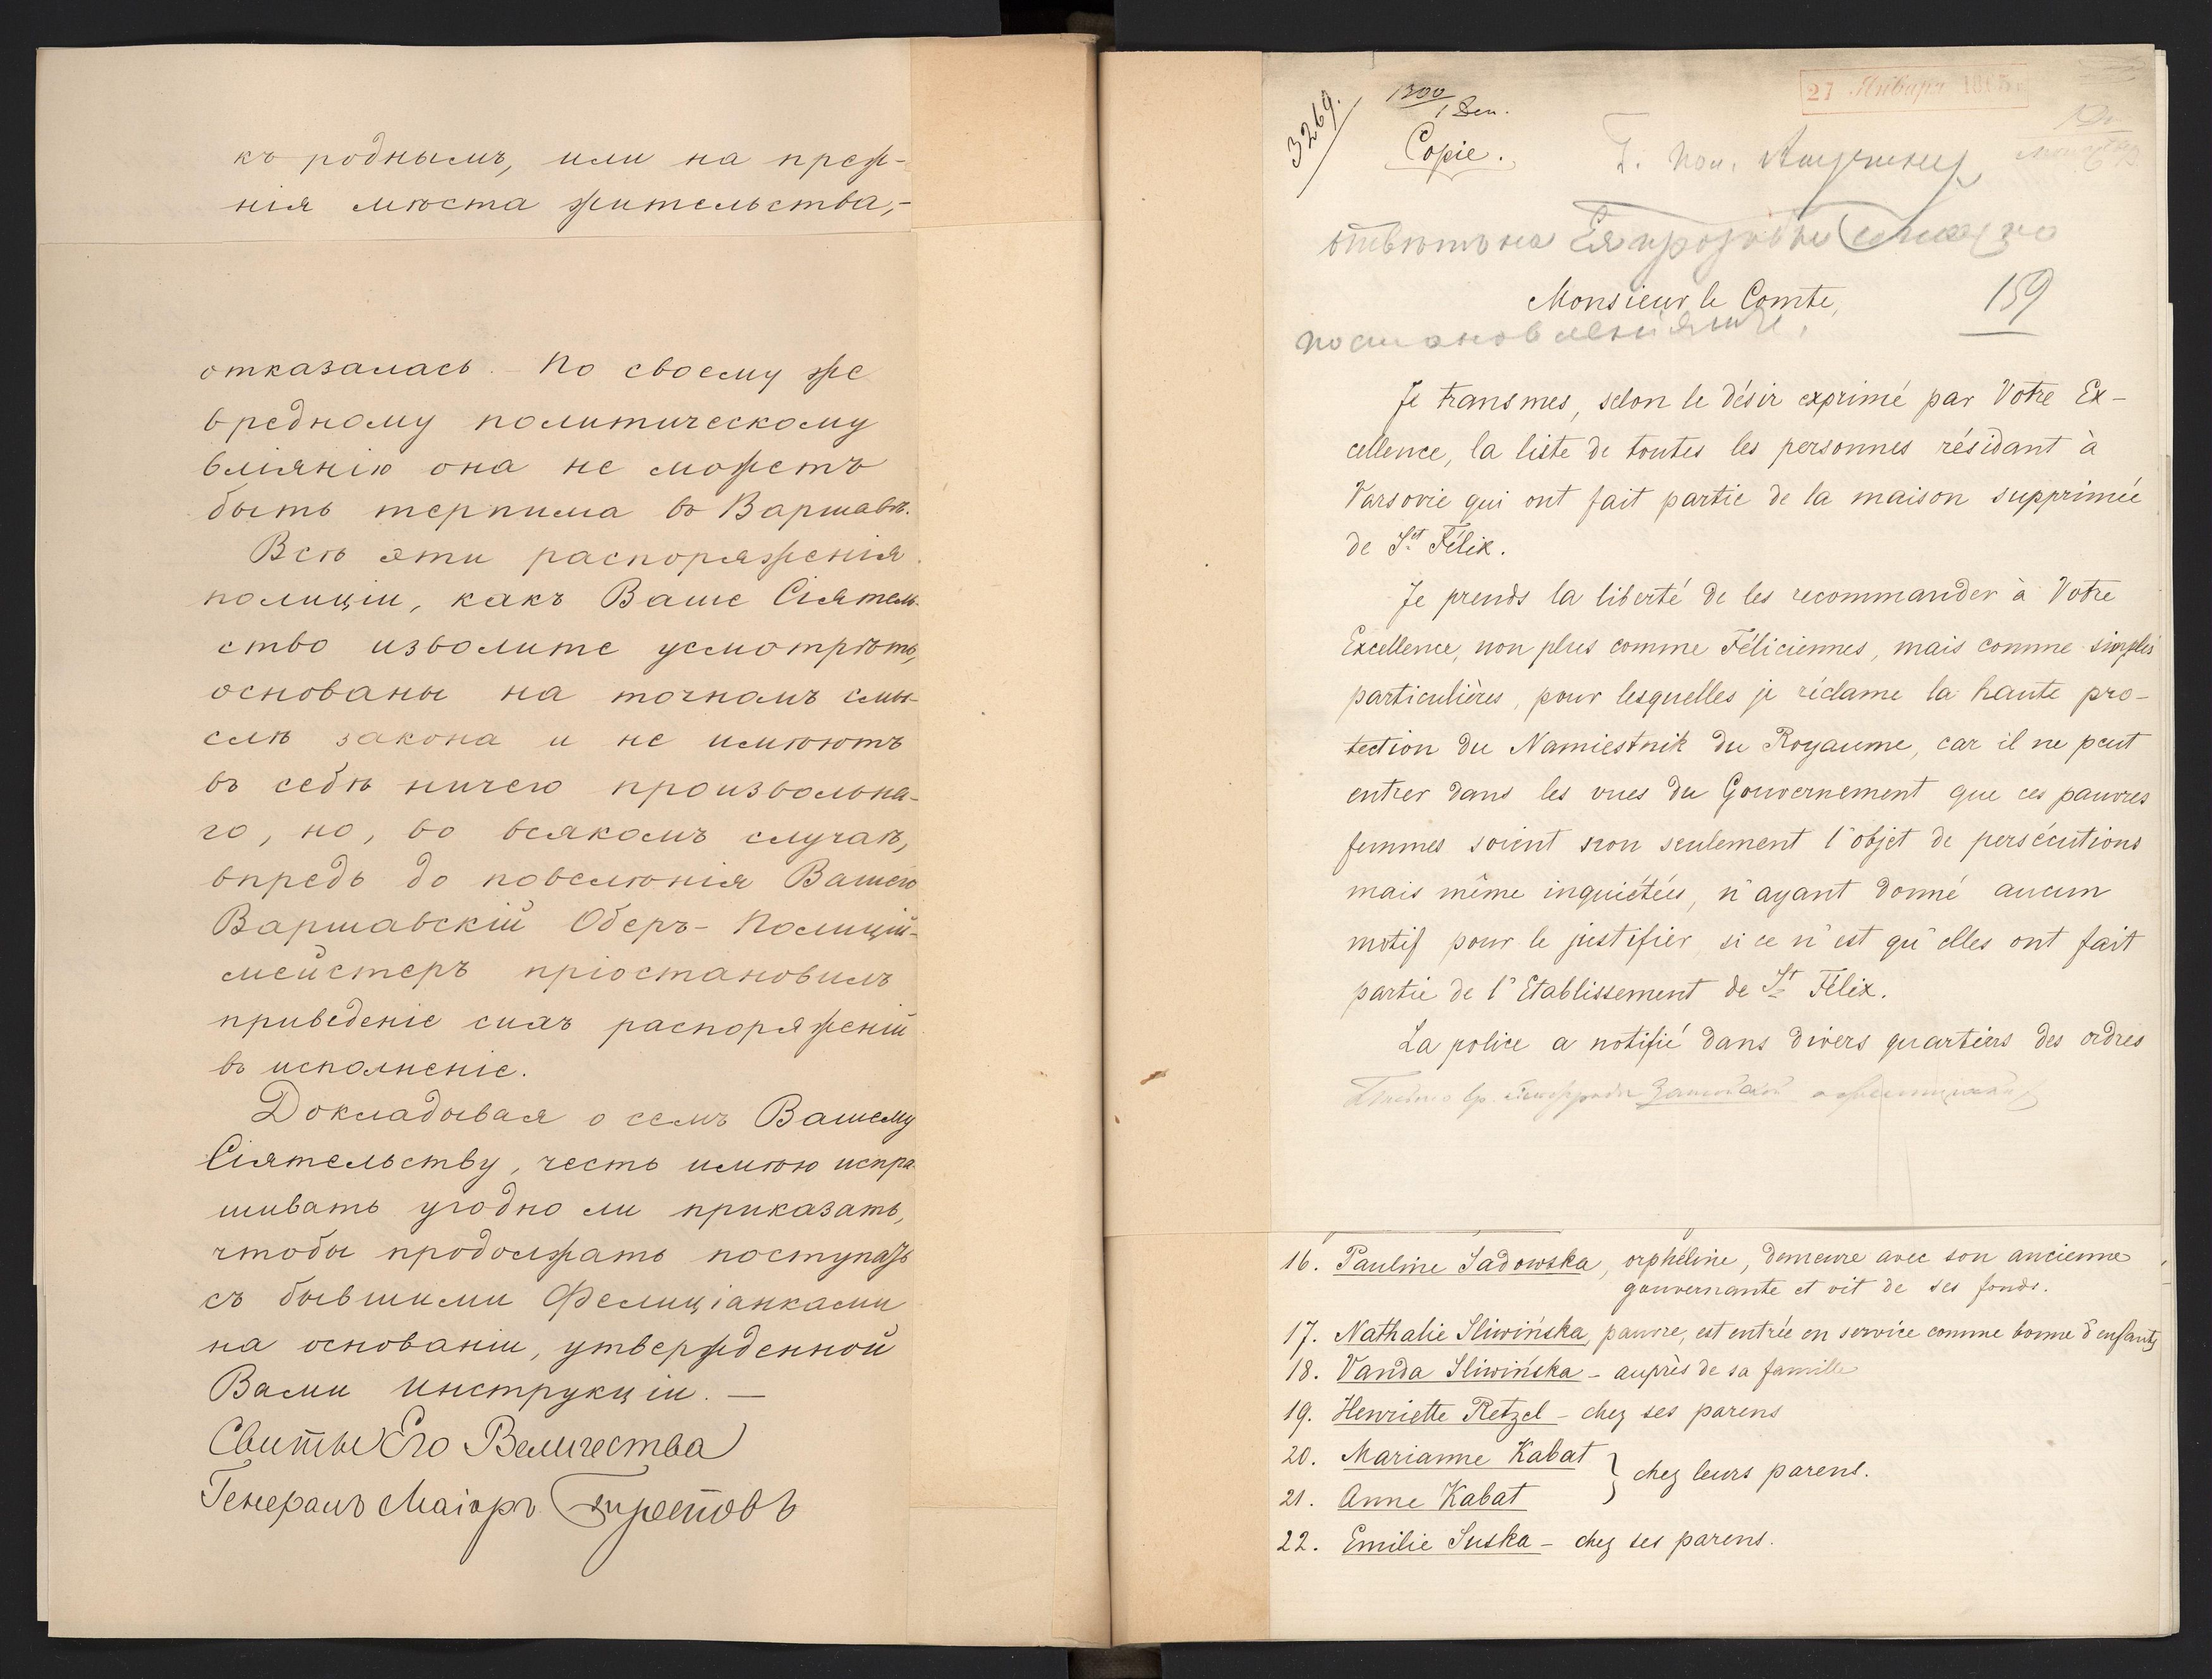 къ роднымъ, или на преж-
нія мѣста жительства,-
отказалась. - По своему же
вредному политическому
вліянію она не можетъ
быть терпима въ Варшавѣ.
Всѣ эти распоряженія
полиціи, какъ Ваше Сіятель-
ство изволите усмотрѣть,
основаны на точномъ смы-
слѣ закона и не имѣютъ
въ себѣ ничего произвольна-
го, но, во всякомъ случаѣ,
впредь до повелѣнія Вашего
Варшавскій Оберъ-Полицій-
мейстеръ пріостановилъ
приведеніе сихъ распоряженій
въ исполненіе.
Докладывая о семъ Вашему
Сіятельству, честь имѣю испра-
шивать угодно ли приказать,
чтобы продолжать поступать
съ бывшими Фелиціанками
на основаніи, утвержденной
Вами Инструкціи. —
Свиты Его Величества
Генералъ Маіоръ Треповъ
27 Января 1865
3269.
1200
1 Ден.
Copie.
159
Monsieur le Comte,
Je transmes, selon le désir exprimé par Votre Ex-
cellence, la liste de toutes les personnes résidant à
Varsovie qui ont fait partie de la maison supprimée
de St Félix.
Je prends la liberté de les recommander à Votre
Excellence, non plus comme Féliciennes, mais comme simples
particulières, pour lesquelles je réclame la haute pro-
tection du Namiestnik du Royaume, car il ne peut
entrer dans les vues du Gouvernement que ces pauvres
femmes soient non seulement l'objet de persécutions
mais même inquiétées, n'ayant donné aucun
motif pour le justifier si ce n'est qu'elles ont fait
partie de l'Etablissement de St Félix.
La police a notifié dans divers quartiers des ordres
16. Pauline Sadowska, orpheline, demeure avec son ancienne
gouvernante et vit de ses fonds.
17. Nathalie Sliwińska, pauvre, est entrée en service comme bonne d'enfants
18. Vanda Sliwińska - auprès de sa famille
19. Henriette Retzel - chez ses parens
20. Marianne Kabat
21. Anne Kabat } chez leurs parens.
22. Emilie Suska - chez ses parens.